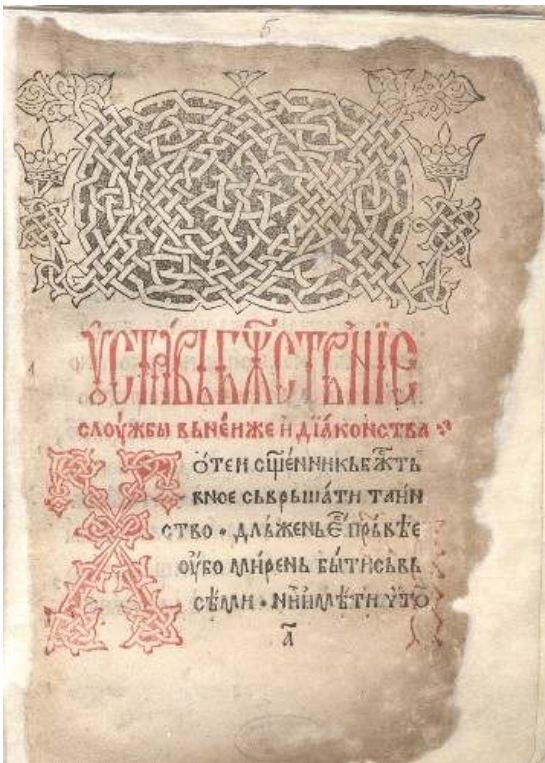 Б
ᲂуста́въ бж҃ств́ныѥ
слоу́жбы вьне́иже и҆дїа́конства
Хо́теи сщ҃е́нникь бж҃ть
вное сьврьшати таин
ство · дль́жень е҆҃ пръвѣе
оу҆бо мире́нь бы́ти сьвь
сѣми · ні имѣ́ти у҆то
а҃